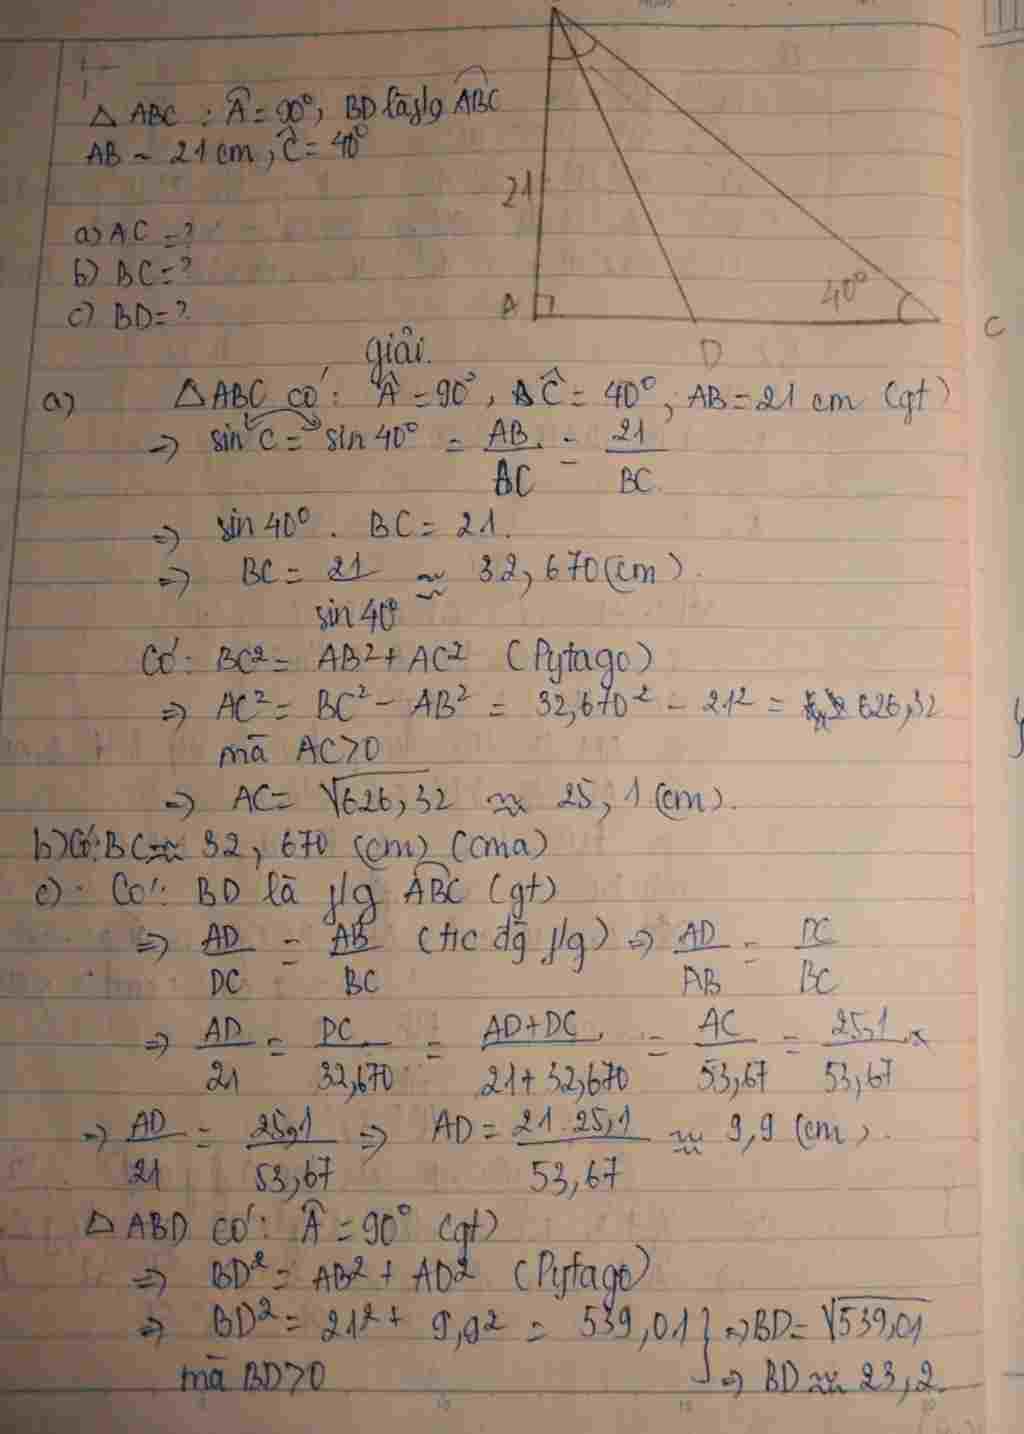 △ ABC : Â = 90°, BD là p/g ABC
AB = 21 cm, Ĉ = 40°
21
a) AC = ?
b) BC = ?
c) BD = ?
A
40°
D
C
giải.
a) △ABC có: Â = 90°, Ĉ = 40°, AB = 21 cm (gt)
⇒ sin C = sin 40° = AB/BC = 21/BC
⇒ sin 40° . BC = 21.
⇒ BC = 21/sin 40° ≈ 32,670 (cm).
Có: BC² = AB² + AC² (Pytago)
⇒ AC² = BC² - AB² = 32,670² - 21² = 626,32
mà AC > 0
⇒ AC = √626,32 ≈ 25,1 (cm).
b) Có: BC ≈ 32,670 (cm) (cma)
c) Có: BD là p/g ABC (gt)
⇒ AD/DC = AB/BC (t/c đg p/g) ⇒ AD/AB = DC/BC
⇒ AD/21 = DC/32,670 = AD+DC/21+32,670 = AC/53,67 = 25,1/53,67
⇒ AD/21 = 25,1/53,67 ⇒ AD = 21.25,1/53,67 ≈ 9,9 (cm).
△ ABD có: Â = 90° (gt)
⇒ BD² = AB² + AD² (Pytago)
⇒ BD² = 21² + 9,9² = 539,01 } ⇒ BD = √539,01
mà BD > 0 ⇒ BD ≈ 23,2.